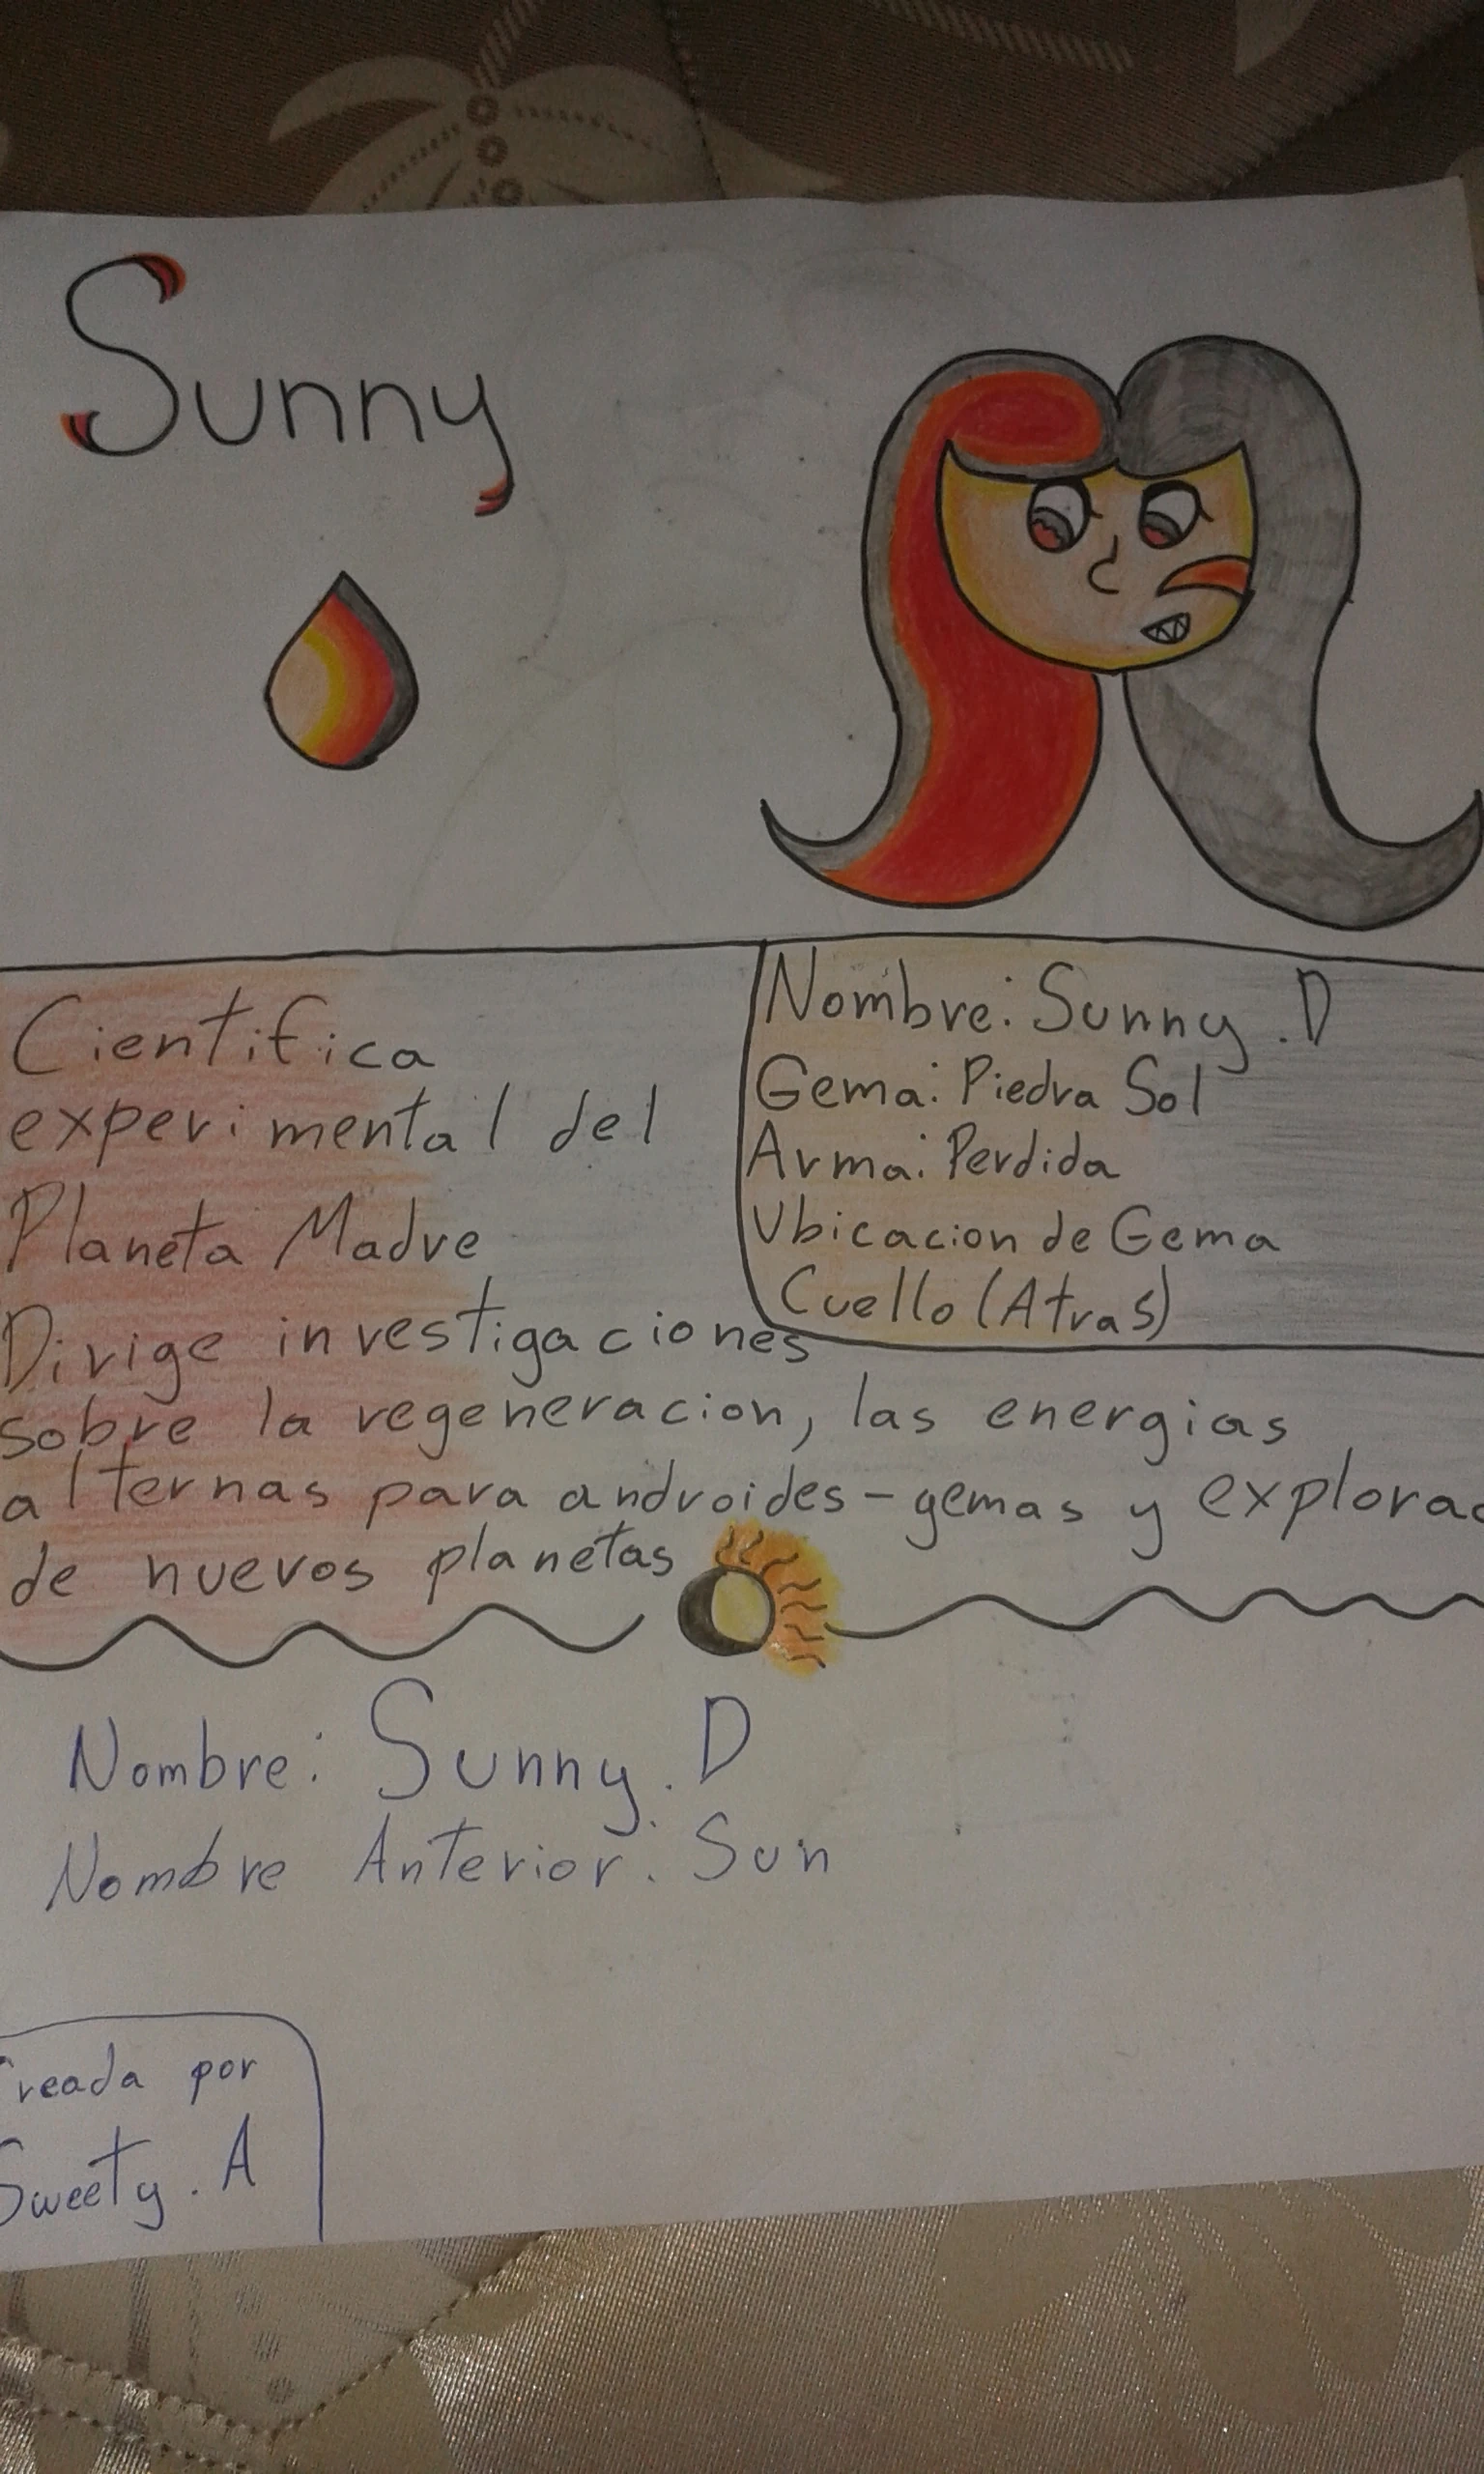 Sunny
Cientifica
experimental del
Planeta Madre
Dirige investigaciones
sobre la regeneracion, las energias
alternas para androides-gemas y explorac
de nuevos planetas
Nombre: Sunny.D
Gema: Piedra Sol
Arma: Perdida
Ubicacion de Gema
Cuello (Atras)
Nombre: Sunny.D
Nombre Anterior: Sun
Creada por
Sweety.A